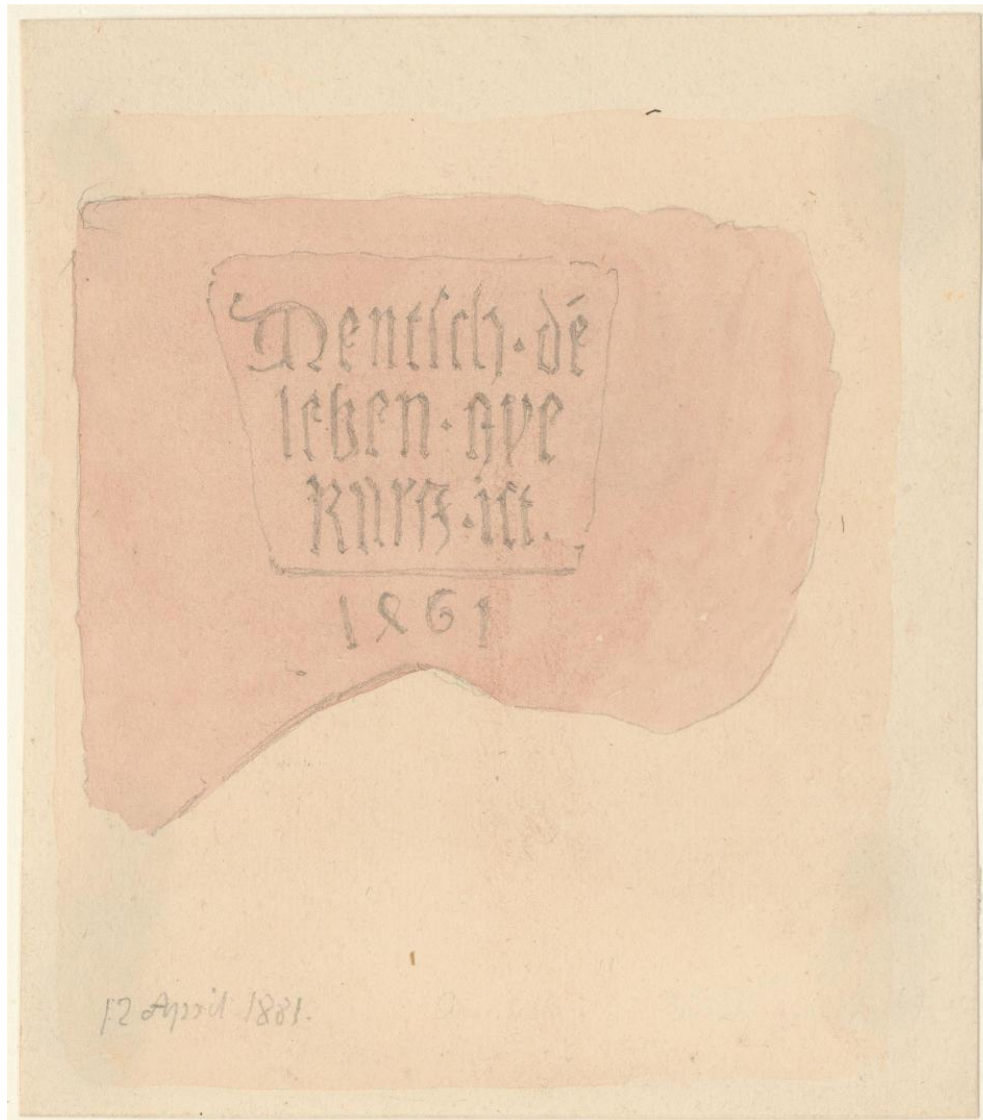 Mentsch · dē
leben · hye
kurtz · ist.
1461
12 April 1881.